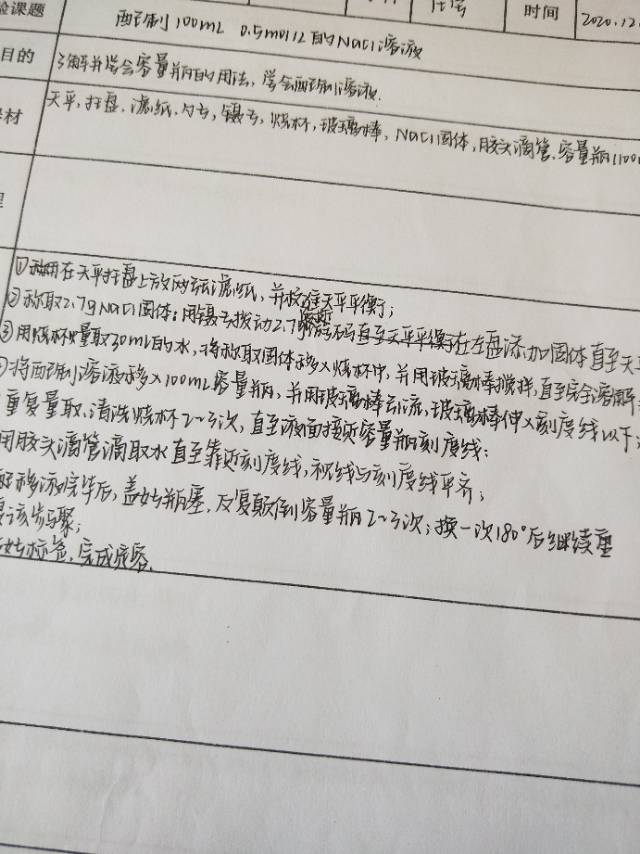 验课题 配制100mL 0.5mol/L的NaCl溶液 时间 2020.12.
目的 了解并学会容量瓶的用法,学会配制溶液.
材 天平,托盘,滤纸,勺子,镊子,烧杯,玻璃棒,NaCl固体,胶头滴管,容量瓶(100m
程
①在天平托盘上放两张滤纸,并校准天平平衡;
②称取2.7gNaCl固体:用镊子拨动2.7g游码直至天平平衡在左盘添加固体直至天平
③用烧杯量取30mL的水,将称取固体移入烧杯中,并用玻璃棒搅拌,直至完全溶解
将配制溶液移入100mL容量瓶,并用玻璃棒引流,玻璃棒伸入刻度线以下;
重复量取,清洗烧杯2~3次,直至液面接近容量瓶刻度线;
用胶头滴管滴取水直至靠近刻度线,视线与刻度线平齐;
移液完毕后,盖好瓶塞,反复颠倒容量瓶2~3次;换一次180°后继续重
该步骤;
好标签,完成定容.